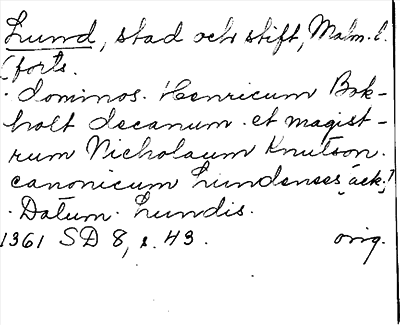 Lund, stad och stift, Malm. l.
(forts.
· dominos. Henricum Bok-
holt decanum. et magist-
rum Nicholaum Knutson.
canonicum Lundenses (ack.)
· Datum. Lundis.
1361 SD 8, s. 43. orig.